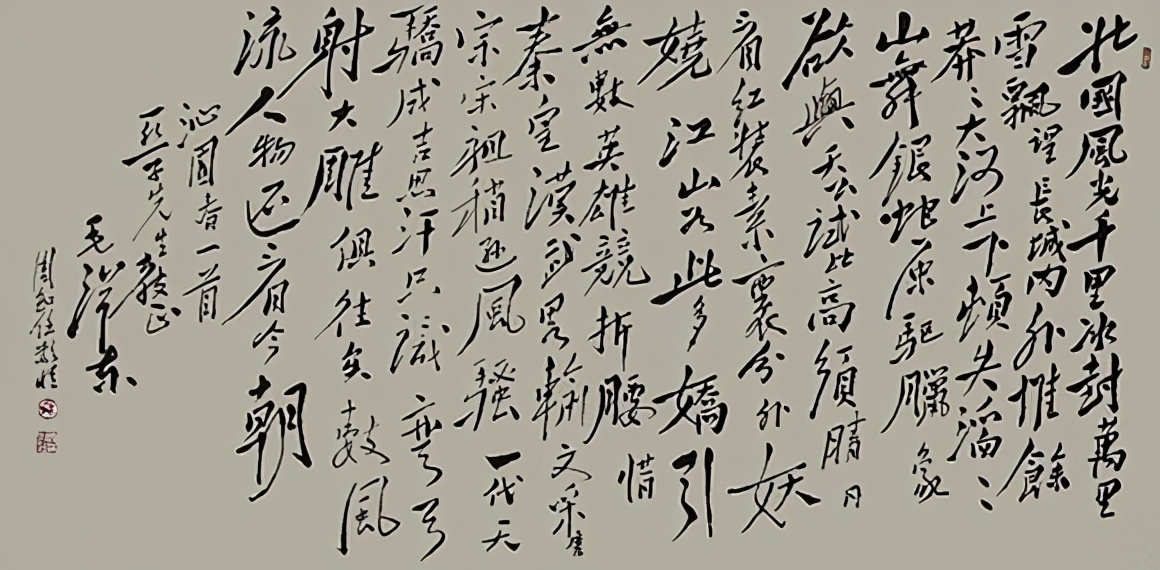 北國風光千里冰封萬里
雪飄望長城内外惟餘
莽ミ大河上下頓失滔ミ
山舞銀蛇原馳臘象
欲與天公試比高須晴日
看紅裝素裹分外妖
嬈江山如此多嬌引
無數英雄競折腰惜
秦皇漢武畧輸文采唐
宗宋祖稍遜風騷一代天
驕成吉思汗只識彎弓
射大雕俱往矣數風
流人物还看今朝
沁園春一首
亞子先生教正
毛澤東